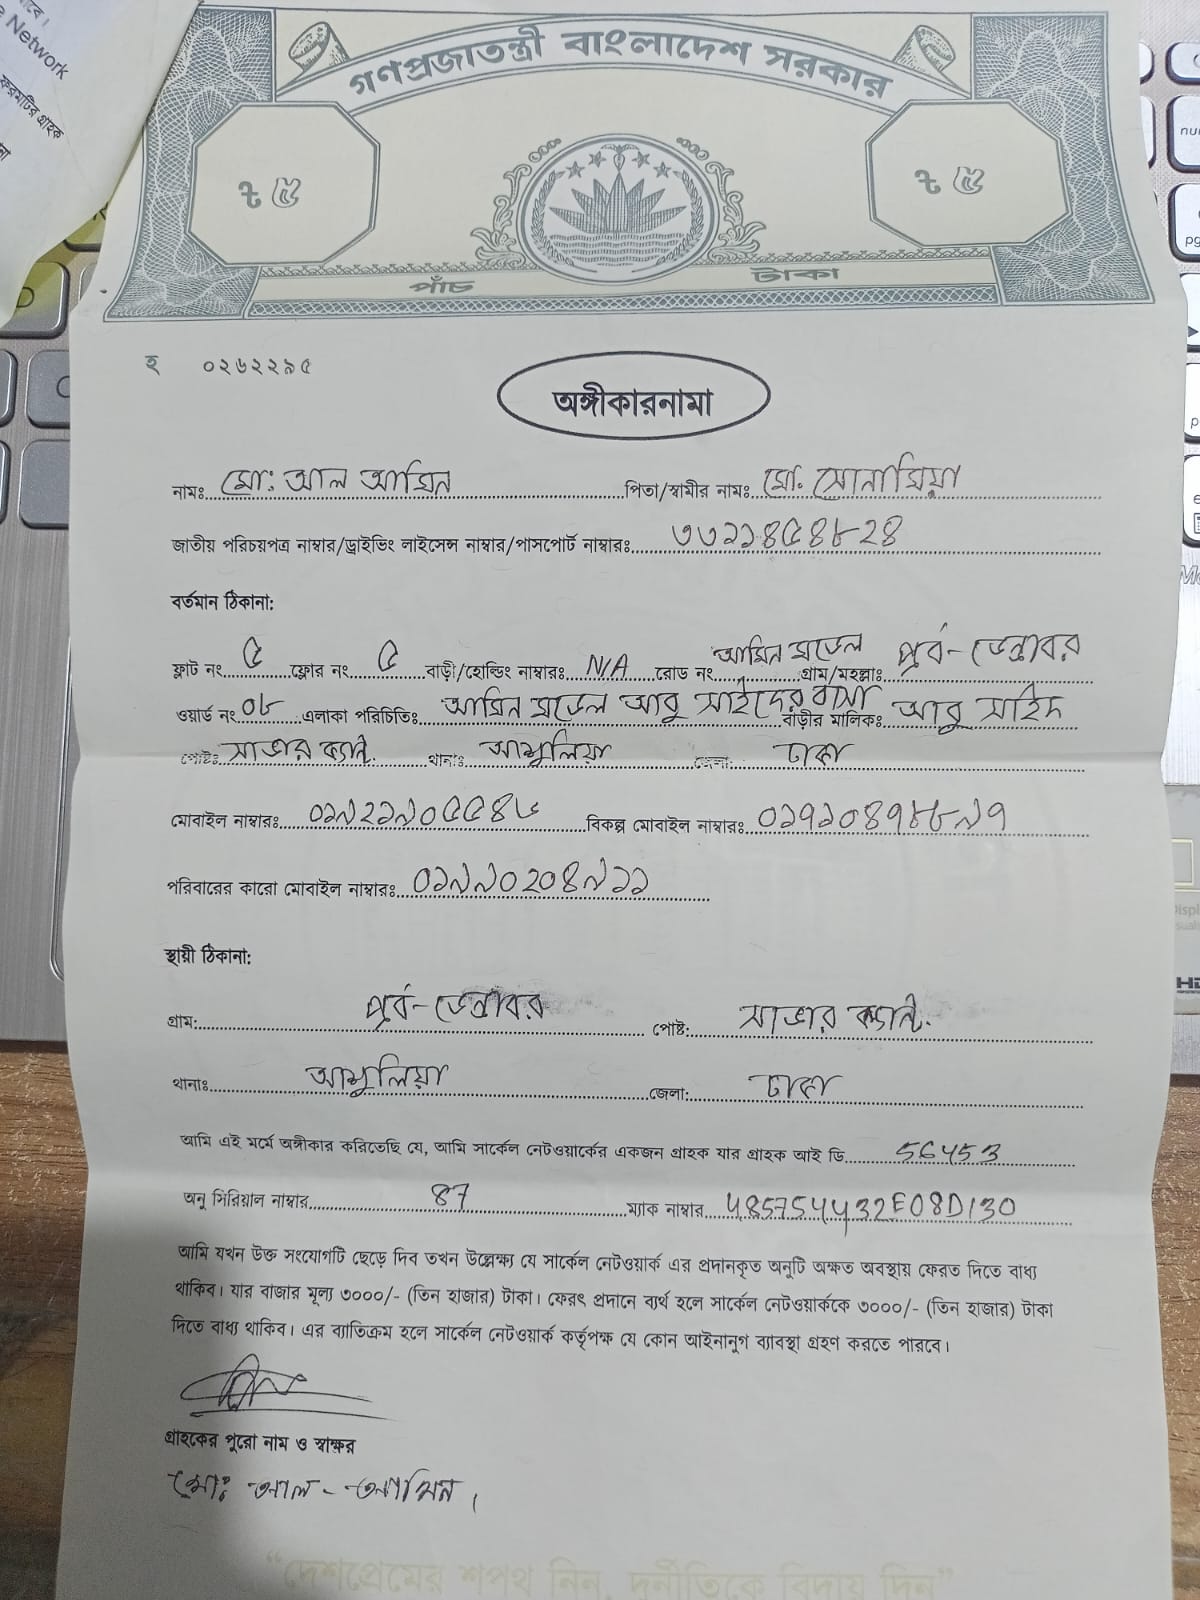 Network
করমটির গ্রাহক
গণপ্রজাতন্ত্রী বাংলাদেশ সরকার
৳ ৫
৳ ৫
পাঁচ টাকা
হ ০২৬২২৯৫
অঙ্গীকারনামা
নামঃ মো: আল আমিন পিতা/স্বামীর নামঃ মো. সোনামিয়া
জাতীয় পরিচয়পত্র নাম্বার/ড্রাইভিং লাইসেন্স নাম্বার/পাসপোর্ট নাম্বারঃ ৩৩১১৪৫৪৮২৪
বর্তমান ঠিকানা:
ফ্লাট নং ৫ ফ্লোর নং ৫ বাড়ী/হোল্ডিং নাম্বারঃ N/A রোড নং আমিন মডেল গ্রাম/মহল্লাঃ পূর্ব-ডেন্ডাবর
ওয়ার্ড নং ০৮ এলাকা পরিচিতিঃ আমিন মডেল আবু সাইদের বাসা বাড়ীর মালিকঃ আবু সাইদ
পোষ্টঃ সাভার ক্যান্ট. থানাঃ আশুলিয়া জেলা: ঢাকা
মোবাইল নাম্বারঃ ০১৯২১৯০৫৫৪৬ বিকল্প মোবাইল নাম্বারঃ ০১৭১০৪৭৮৮৯৭
পরিবারের কারো মোবাইল নাম্বারঃ ০১৯৯০২০৪৯১১
স্থায়ী ঠিকানা:
গ্রাম: পূর্ব-ডেন্ডাবর পোষ্ট: সাভার ক্যান্ট.
থানাঃ আশুলিয়া জেলা: ঢাকা
আমি এই মর্মে অঙ্গীকার করিতেছি যে, আমি সার্কেল নেটওয়ার্কের একজন গ্রাহক যার গ্রাহক আই ডি 56453
অনু সিরিয়াল নাম্বার 87 ম্যাক নাম্বার 485754432E08D130
আমি যখন উক্ত সংযোগটি ছেড়ে দিব তখন উল্লেক্ষ্য যে সার্কেল নেটওয়ার্ক এর প্রদানকৃত অনুটি অক্ষত অবস্থায় ফেরত দিতে বাধ্য
থাকিব। যার বাজার মূল্য ৩০০০/- (তিন হাজার) টাকা। ফেরৎ প্রদানে ব্যর্থ হলে সার্কেল নেটওয়ার্ককে ৩০০০/- (তিন হাজার) টাকা
দিতে বাধ্য থাকিব। এর ব্যতিক্রম হলে সার্কেল নেটওয়ার্ক কর্তৃপক্ষ যে কোন আইনানুগ ব্যাবস্থা গ্রহণ করতে পারবে।
গ্রাহকের পুরো নাম ও স্বাক্ষর
মো: আল-আমিন।
“দেশপ্রেমের শপথ নিন, দুর্নীতিকে বিদায় দিন”